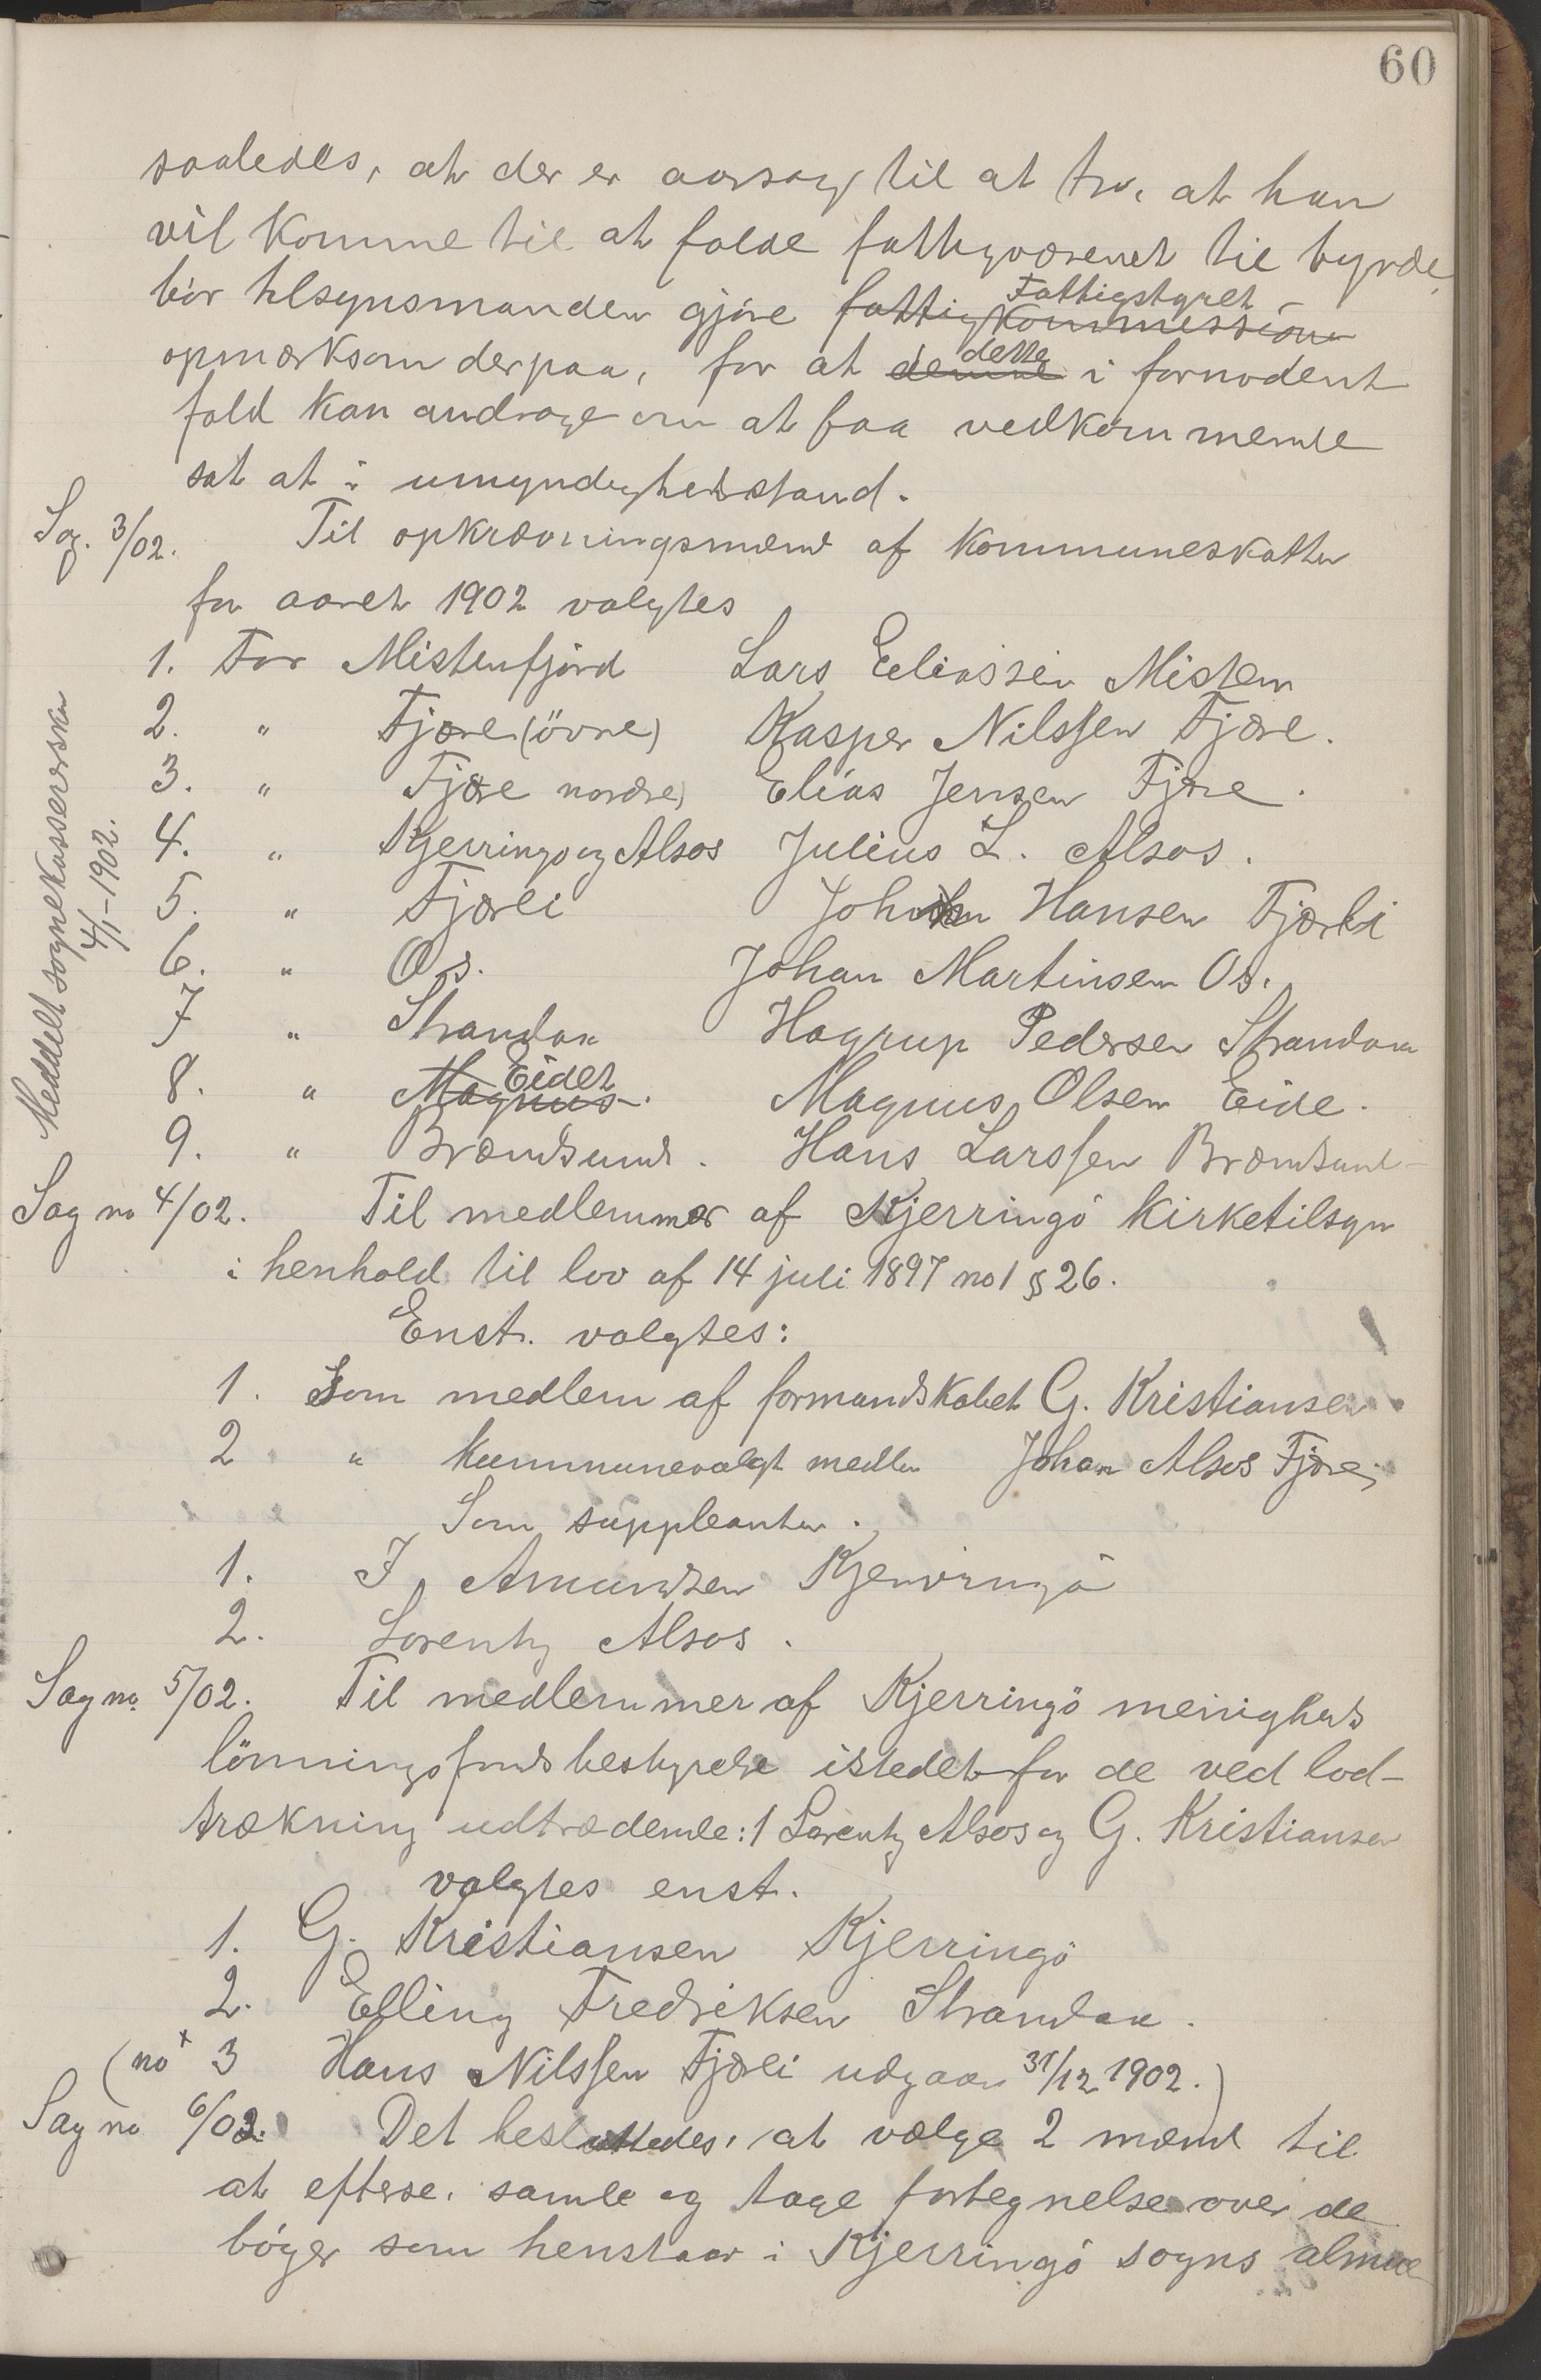 60
saaledes, at der er aarsag til at tro, at han
vil komme til at falde fattigvæsenet til byrde,
bör tilsynsmanden gjöre fattigkommissionen Fattigstyret
opmærksom derpaa, for at denne dette i fornödent
fald kan andrage om at faa vedkommende
sat at i umyndighedsstand.
Sag. 3/02. Til opkrævningsmænd af kommuneskatten
for aaret 1902 valgtes
1. For Mistenfjord Lars Eeliassen Misten
2. " Fjære (övre) Kasper Nilssen Fjære.
3. " Fjære nordre) Elias Jensen Fjære.
4. " Kjerringö og Alsos Julius L. Alsos.
5. " Fjærli Johan Hansen Fjærli
6. " Os. Johan Martinsen Os.
7 " Strandaa Hagrup Pedersen Strandaa
8. " Magnus Eidet. Magnus Olsen Eide.
9. " Brændsund. Hans Larssen Brændsund
Meddelt sognekassereren
4/1-1902.
Sag no 4/02. Til medlemmer af Kjerringö kirketilsyn
i henhold til lov af 14 juli 1897 no 1 § 26.
Enst. valgtes:
1. Som medlem af formandskabet G. Kristiansen
2 " kummunevalgt medlem Johan Alsos Fjære,
Som suppleanter.
1. J. Amundsen Kjerringö
2. Lorentz Alsos.
Sag no. 5/02. Til medlemmer af Kjerringö menigheds
lönningsfonds bestyrelse istedet for de ved lod-
trækning udtrædende: 1 Lorentz Alsos og G. Kristiansen
valgtes enst.
1. G. Kristiansen Kjerringö
2. Elling Fredriksen Strandaa.
(no + 3 Hans Nilssen Fjærli udgaar 31/12 1902.)
Sag no 6/02. Det besluttedes, at vælge 2 mænd til
at efterse, samle og tage fortegnelse over de
böger som henstaar i Kjerringö sogns almue